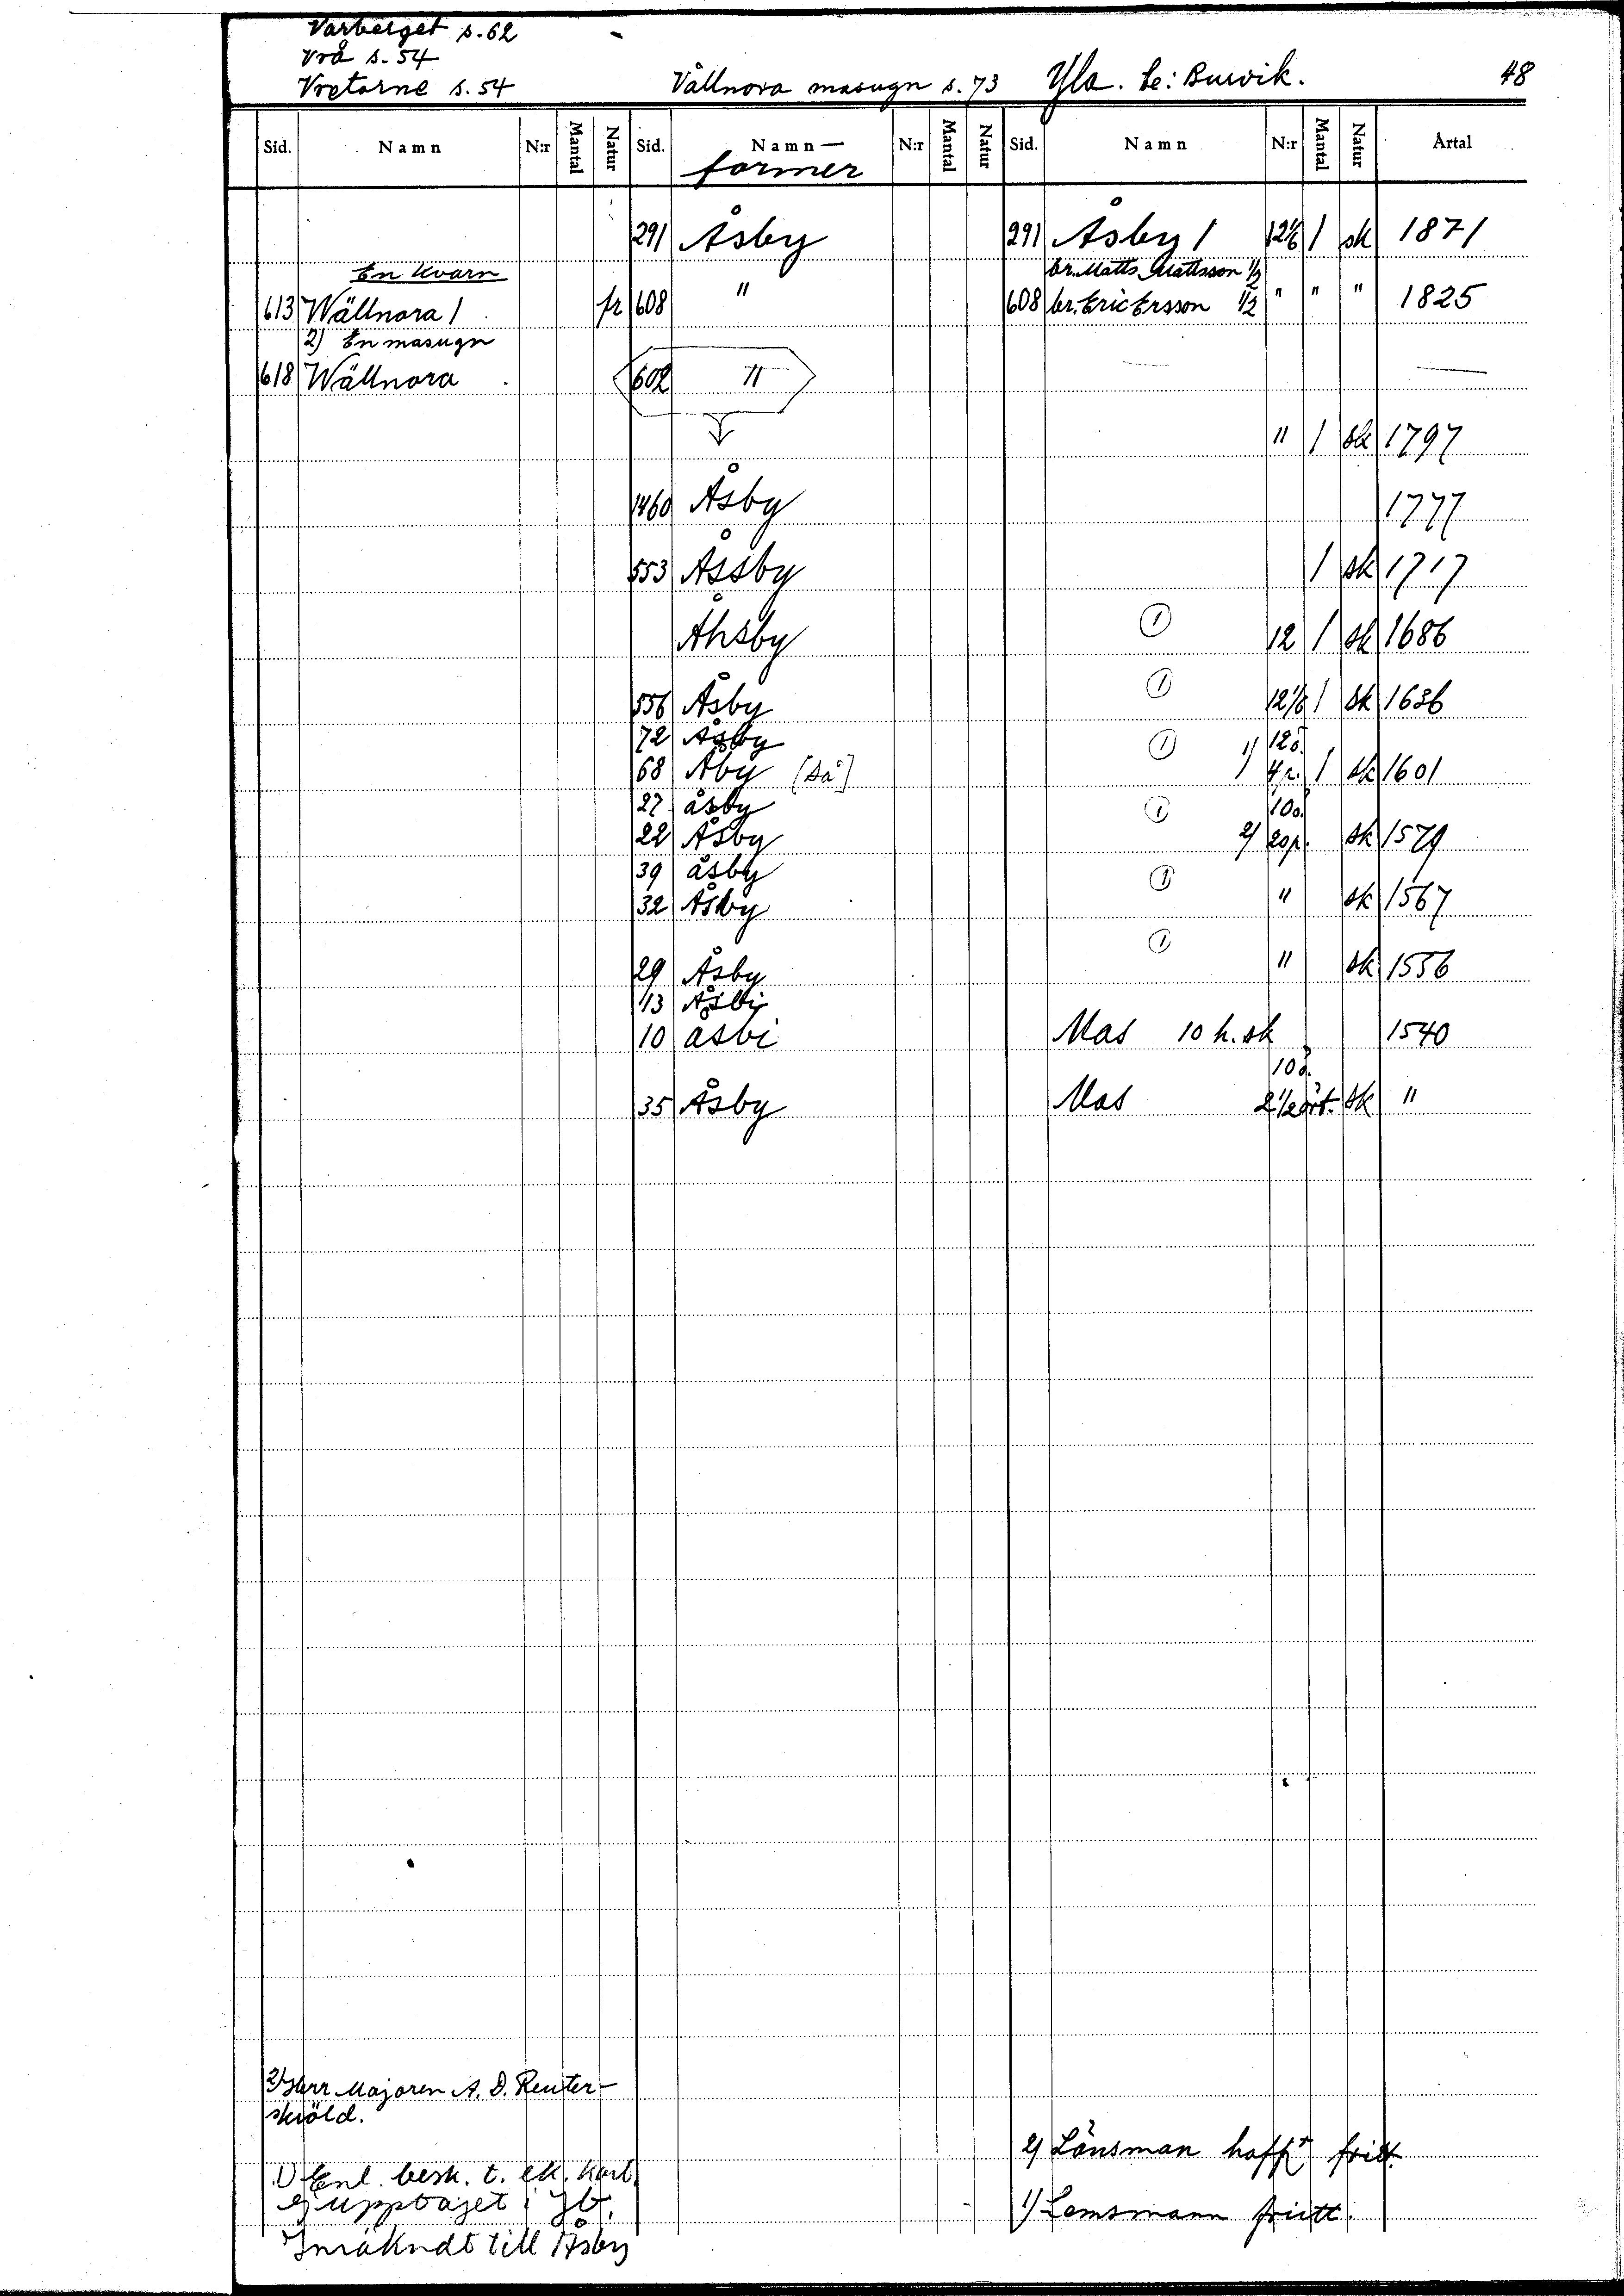 Varberget s. 62
Vrå s. 54
Vretarne s. 54 Vällnora masugn s. 73 Yla. le: Burvik. 48
Sid. Namn N:r Mantal Natur Sid. Namn— N:r Mantal Natur Sid. Namn N:r Mantal Natur Årtal
former
291 Åsby 291 Åsby 1 12 1/6 1 sk 1871
En kvarn br. Matts Mattsson 1/2
613 Wällnora 1 fr 608 " 608 br. Eric Ersson 1/2 " " " 1825
2) En masugn
618 Wällnora 602 " —
" 1 sk 1797
1460 Åsby 1777
553 Åssby 1 sk 1717
Åhsby 1 12 1 sk 1686
556 Åsby 1 12 1/6 1 sk 1636
72 Åsby 1 1) 12ö.
68 Åby [så] 4p. 1 sk 1601
27 åsby 1 10ö.
22 Åsby 2) 20p. sk 1579
39 åsby 1
32 Åsby " sk 1567
1
29 Åsby " sk 1556
13 Åsbÿ
10 åsbi Mas 10 h. sk 1540
10ö.
35 Åsby Mas 2 1/2 ört. sk "
2) Herr Majoren A. D. Reuter-
skiöld.
2) Länsman hafft fritt
1) Enl. besk. t. ek. kart.
ej upptaget i Jb. 1) Lensmann friitt.
Inräkndt till Åsby